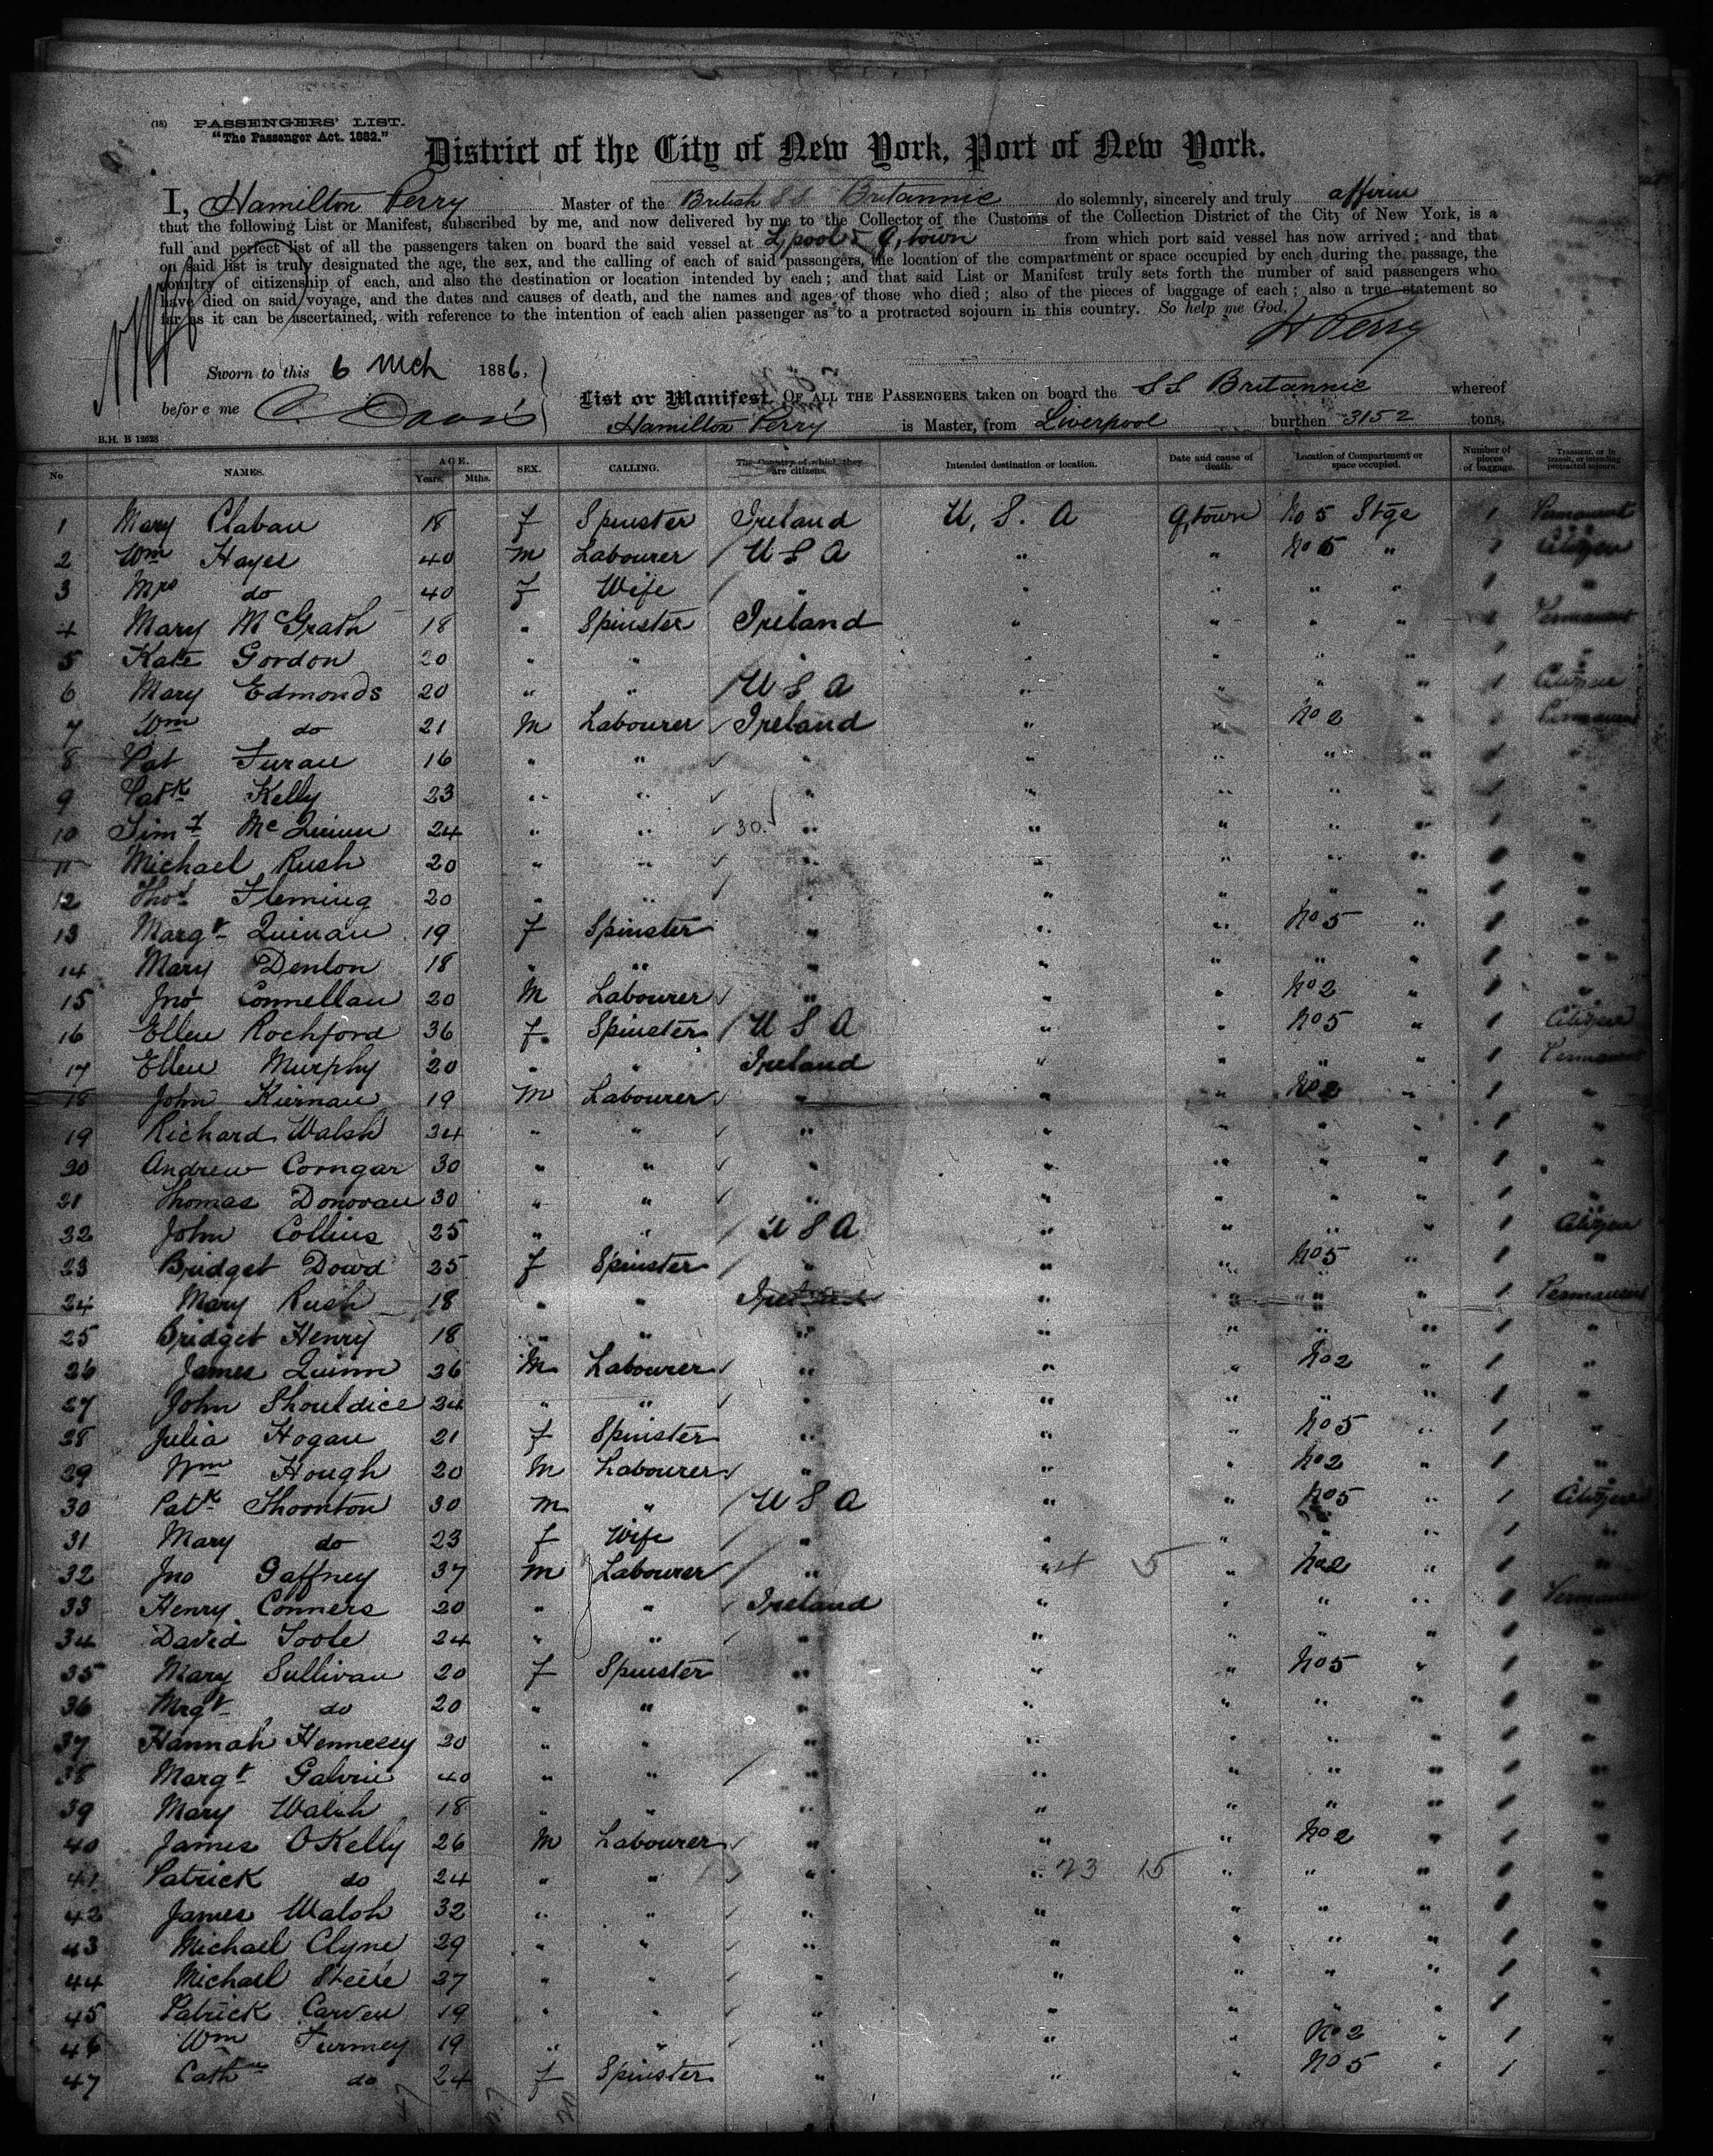 (18) PASSENGERS' LIST.
"The Passenger Act. 1882."
District of the City of New York, Port of New York.
I, Hamilton Perry Master of the British SS Britannic do solemnly, sincerely and truly affirm
that the following List or Manifest, subscribed by me, and now delivered by me to the Collector of the Customs of the Collection District of the City of New York, is a
full and perfect list of all the passengers taken on board the said vessel at L,pool & Q,town from which port said vessel has now arrived; and that
on said list is truly designated the age, the sex, and the calling of each of said passengers, the location of the compartment or space occupied by each during the passage, the
country of citizenship of each, and also the destination or location intended by each; and that said List or Manifest truly sets forth the number of said passengers who
have died on said voyage, and the dates and causes of death, and the names and ages of those who died; also of the pieces of baggage of each; also a true statement so
far as it can be ascertained, with reference to the intention of each alien passenger as to a protracted sojourn in this country. So help me God.
H Perry
Sworn to this 6 Mch 1886,
before me C. Davis
List or Manifest OF ALL THE PASSENGERS taken on board the SS Britannic whereof
Hamilton Perry is Master, from Liverpool burthen 3152 tons.
B.H. B 12623
No NAMES. AGE. Years. Mths. SEX. CALLING. The Country of which they are citizens. Intended destination or location. Date and cause of death. Location of Compartment or space occupied. Number of pieces of baggage. Transient, or in transit, or intending protracted sojourn.
1 Mary Claban 18 f Spinster Ireland U. S. A Q,town No 5 Stge 1 Permanent
2 Wm Hayes 40 M Labourer / U S A " " No 5 " 1 Citizen
3 Mrs do 40 f Wife / " " " " " 1 "
4 Mary McGrath 18 " Spinster Ireland " " " " 1 Permanent
5 Kate Gordon 20 " " " " " " " 1 "
6 Mary Edmonds 20 " " / U S A " " " " 1 Citizen
7 Wm do 21 M Labourer ✓ Ireland " " No 2 " 1 Permanent
8 Pat Furau 16 " " ✓ " " " " " 1 "
9 Patk Kelly 23 " " ✓ " " " " " 1 "
10 Timy McQuinn 24 " " ✓ 30. " " " " " 1 "
11 Michael Rush 20 " " ✓ " " " " " 1 "
12 Thos Fleming 20 " " ✓ " " " " 1 "
13 Margt Quinan 19 f Spinster " " " No 5 " 1 "
14 Mary Denton 18 " " " " " " " 1 "
15 Jno Connellan 20 M Labourer ✓ " " " No 2 " 1 "
16 Ellen Rochford 36 f Spinster / U S A " " No 5 " 1 Citizen
17 Ellen Murphy 20 " " Ireland " " " " 1 Permanent
18 John Kiernan 19 M Labourer ✓ " " " No 2 " 1 "
19 Richard Walsh 34 " " ✓ " " " " " 1 "
20 Andrew Corngar 30 " " ✓ " " " " " 1 "
21 Thomas Donovan 30 " " ✓ " " " " " 1 "
22 John Collins 25 " " / U S A " " " " 1 Citizen
23 Bridget Dowd 25 f Spinster / " " " No 5 " 1 "
24 Mary Rush 18 " " Ireland " " " " 1 Permanent
25 Bridget Henry 18 " " " " " " " 1 "
26 James Quinn 26 M Labourer ✓ " " " No 2 " 1 "
27 John Shouldice 24 " " ✓ " " " " " 1 "
28 Julia Hogan 21 f Spinster " " " No 5 " 1 "
29 Wm Hough 20 M Labourer ✓ " " " No 2 " 1 "
30 Patk Thornton 30 M " / U S A " " No 5 " 1 Citizen
31 Mary do 23 f Wife / " " " " " 1 "
32 Jno Gaffney 37 M Labourer / " " 4 5 " No 2 " 1 "
33 Henry Conners 20 " " ✓ Ireland " " " " 1 Permanent
34 David Toole 24 " " ✓ " " " " " 1 "
35 Mary Sullivan 20 f Spinster " " " No 5 " 1 "
36 Mrgt do 20 " " " " " " " 1 "
37 Hannah Hennessy 20 " " " " " " " 1 "
38 Margt Galvin 40 " " / " " " " " 1 "
39 Mary Walsh 18 " " " " " " " 1 "
40 James OKelly 26 M Labourer ✓ " " " No 2 " 1 "
41 Patrick do 24 " " ✓ " " 23 15 " " " 1 "
42 James Walsh 32 " " ✓ " " " " " 1 "
43 Michael Clyne 29 " " ✓ " " " " " 1 "
44 Michael Steele 27 " " ✓ " " " " " 1 "
45 Patrick Carven 19 " " ✓ " " " " " 1 "
46 Wm Furmey 19 " " ✓ " " " No 2 " 1 "
47 Cathne do 24 f Spinster " " " No 5 " 1 "
47 27 20